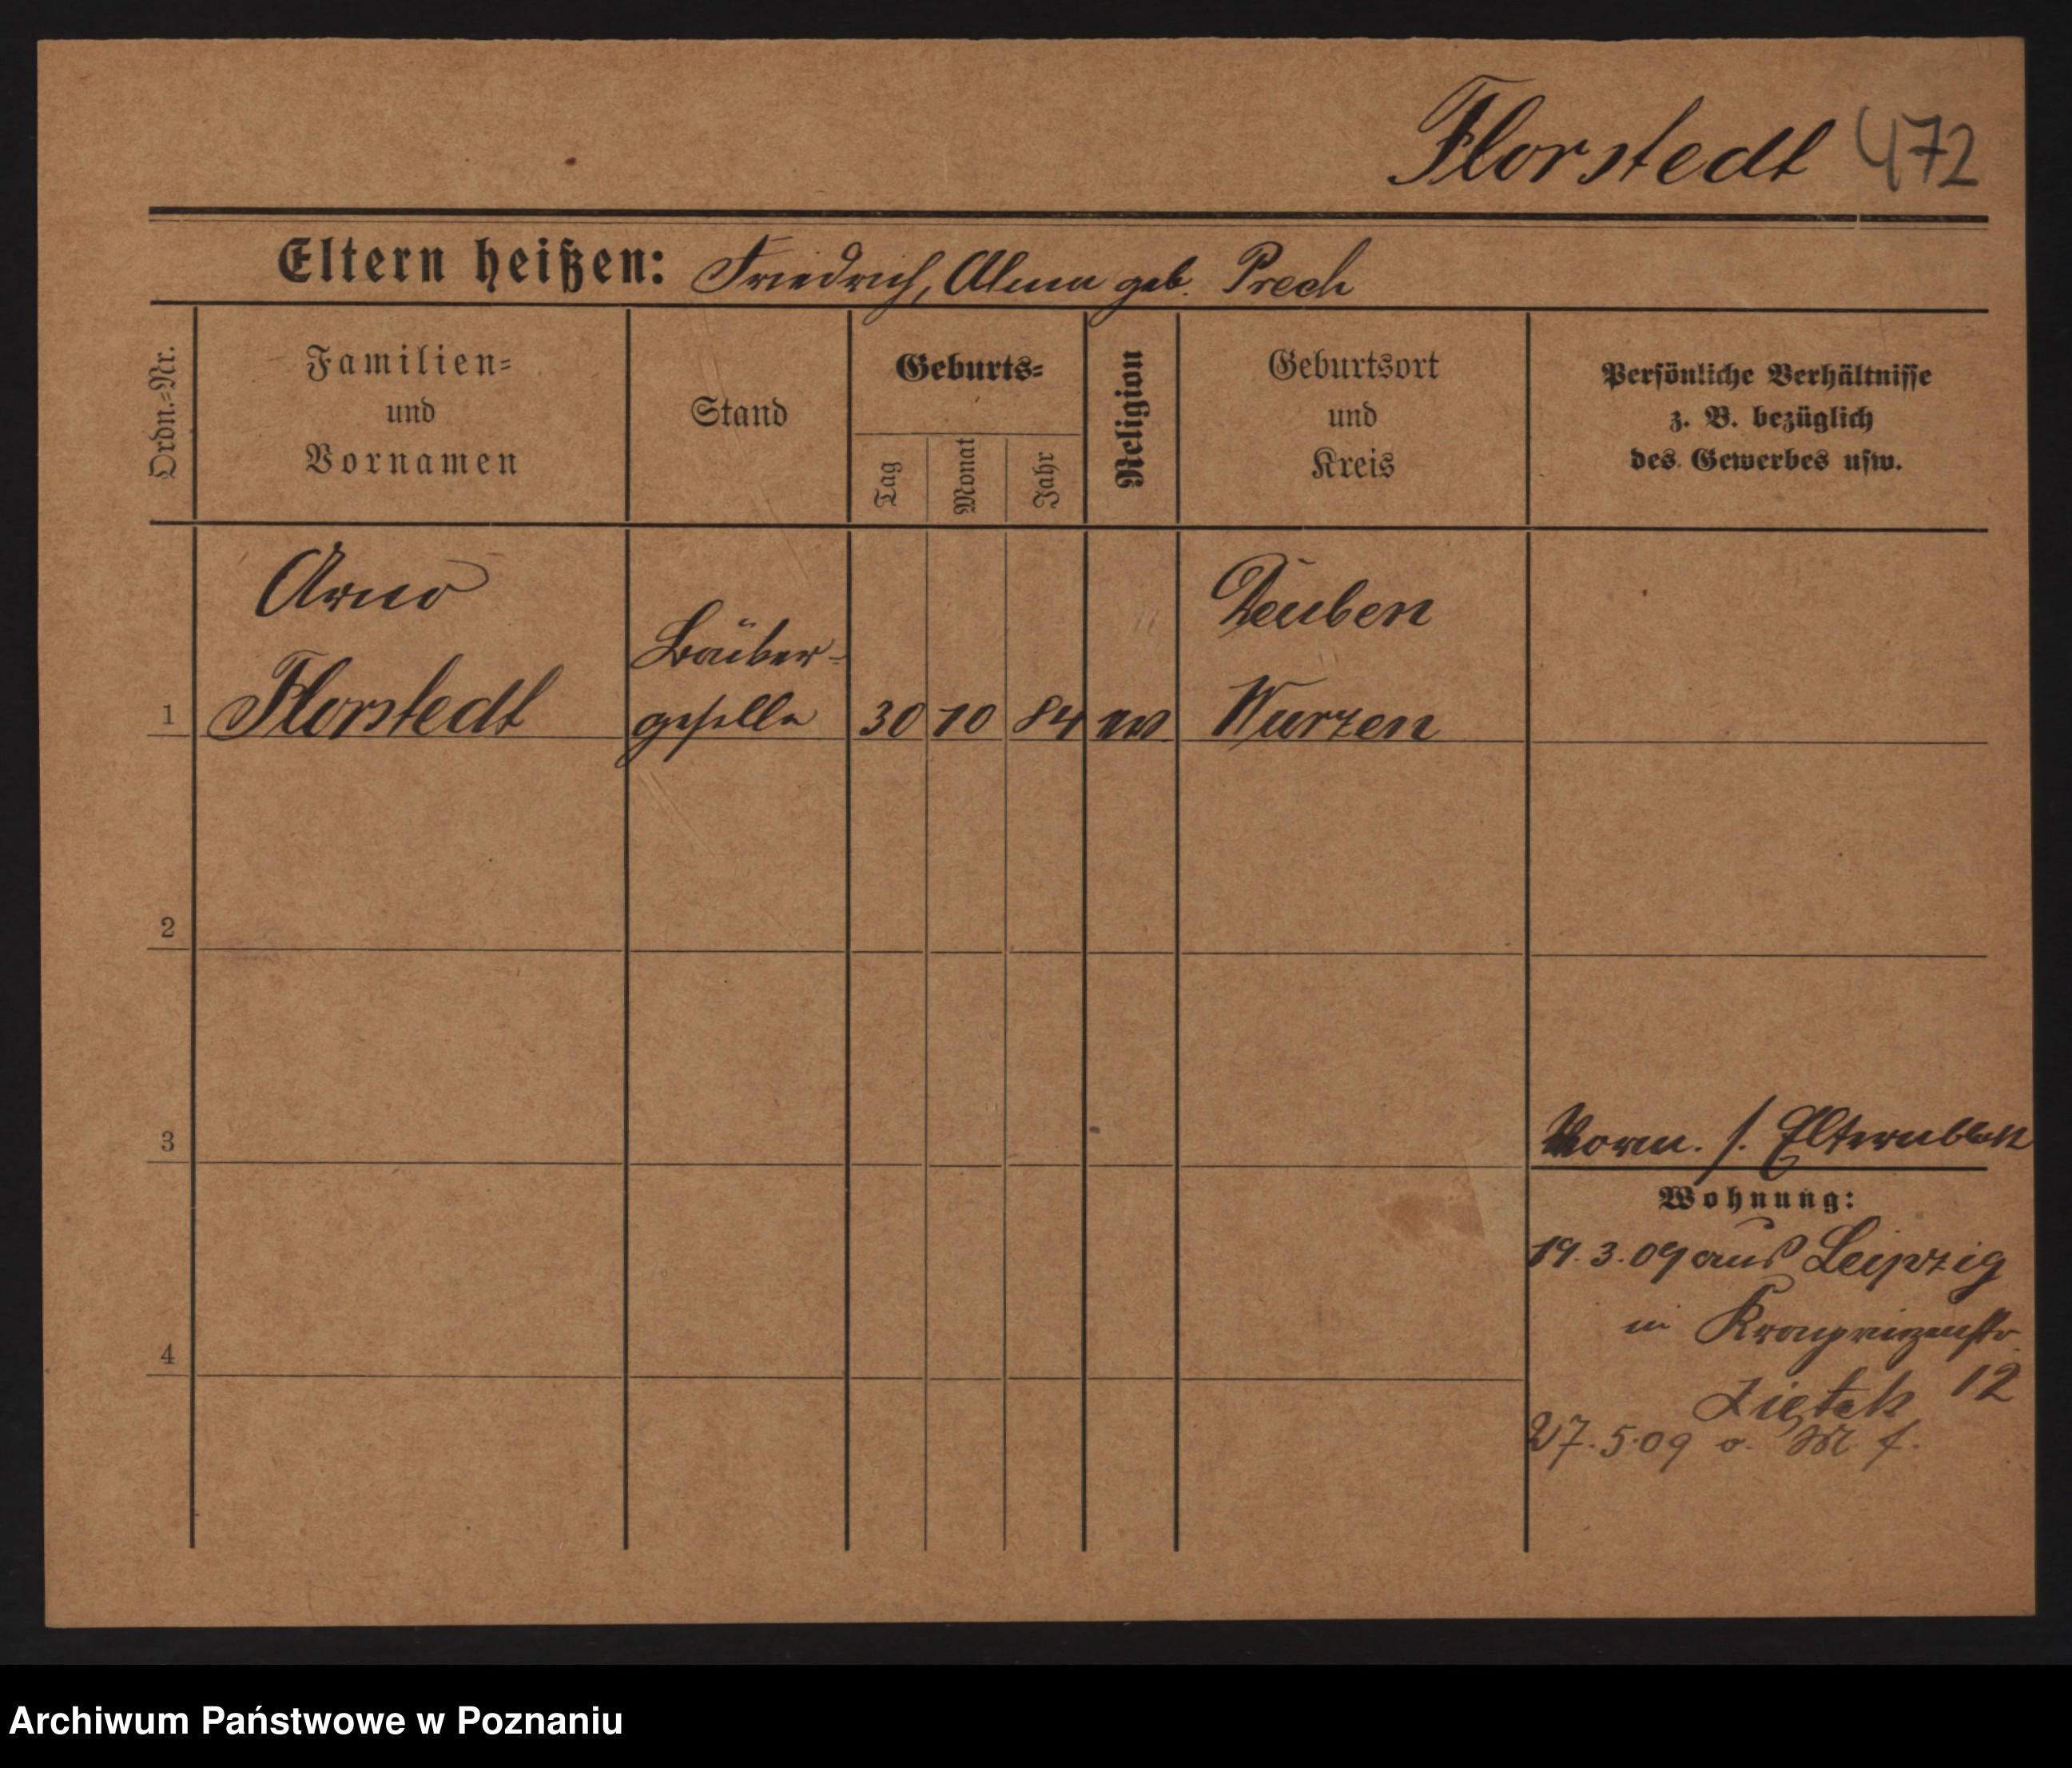 Florstedt 472
Eltern heißen: Friedrich, Alma geb. Prech
Ordn.-Nr.
Familien-
und
Vornamen
Stand
Geburts-
Tag
Monat
Jahr
Religion
Geburtsort
und
Kreis
Persönliche Verhältnisse
z. B. bezüglich
des Gewerbes usw.
Arno
Florstedt
geselle
1
30 10 84 ev.
Deuben
Wurzen
2
3
4
Vorm. s. Elternblatt
Wohnung:
19.3.09 aus Leipzig
in Kronprinzenstr.
12
Ziętek
27.5.09 o. M f.
Archiwum Państwowe w Poznaniu